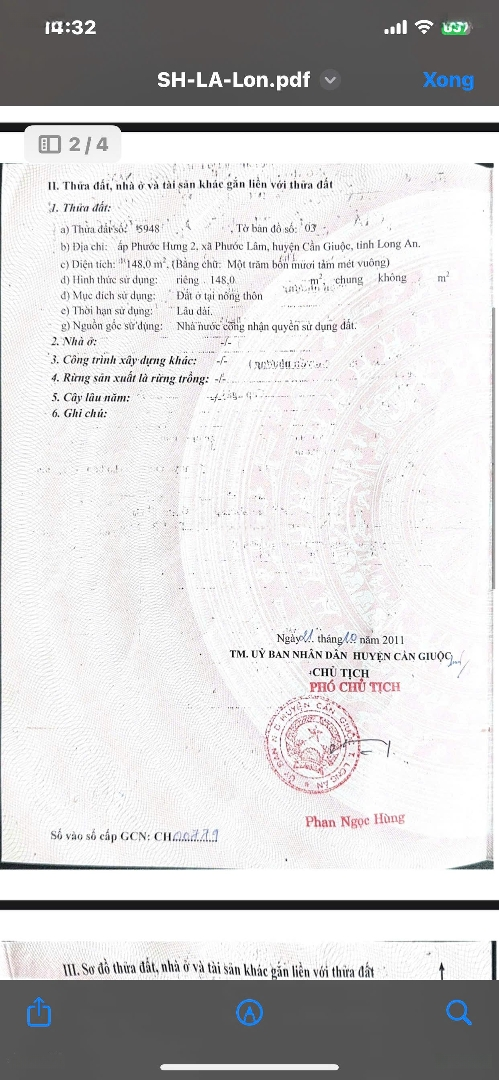 14:32
SH-LA-Lon.pdf
Xong
2/4
II. Thửa đất, nhà ở và tài sản khác gắn liền với thửa đất
1. Thửa đất:
a) Thửa đất số: 5948 , Tờ bản đồ số: 03
b) Địa chỉ: ấp Phước Hưng 2, xã Phước Lâm, huyện Cần Giuộc, tỉnh Long An.
c) Diện tích: 148,0 m², (Bằng chữ: Một trăm bốn mươi tám mét vuông)
d) Hình thức sử dụng: riêng 148,0 m², chung không m²
đ) Mục đích sử dụng: Đất ở tại nông thôn
e) Thời hạn sử dụng: Lâu dài.
g) Nguồn gốc sử dụng: Nhà nước công nhận quyền sử dụng đất.
2. Nhà ở: -/-
3. Công trình xây dựng khác: -/-
4. Rừng sản xuất là rừng trồng: -/-
5. Cây lâu năm: -/-
6. Ghi chú:
Ngày 11 tháng 10 năm 2011
TM. UỶ BAN NHÂN DÂN HUYỆN CẦN GIUỘC
CHỦ TỊCH
PHÓ CHỦ TỊCH
Phan Ngọc Hùng
Số vào sổ cấp GCN: CH00779
III. Sơ đồ thửa đất, nhà ở và tài sản khác gắn liền với thửa đất